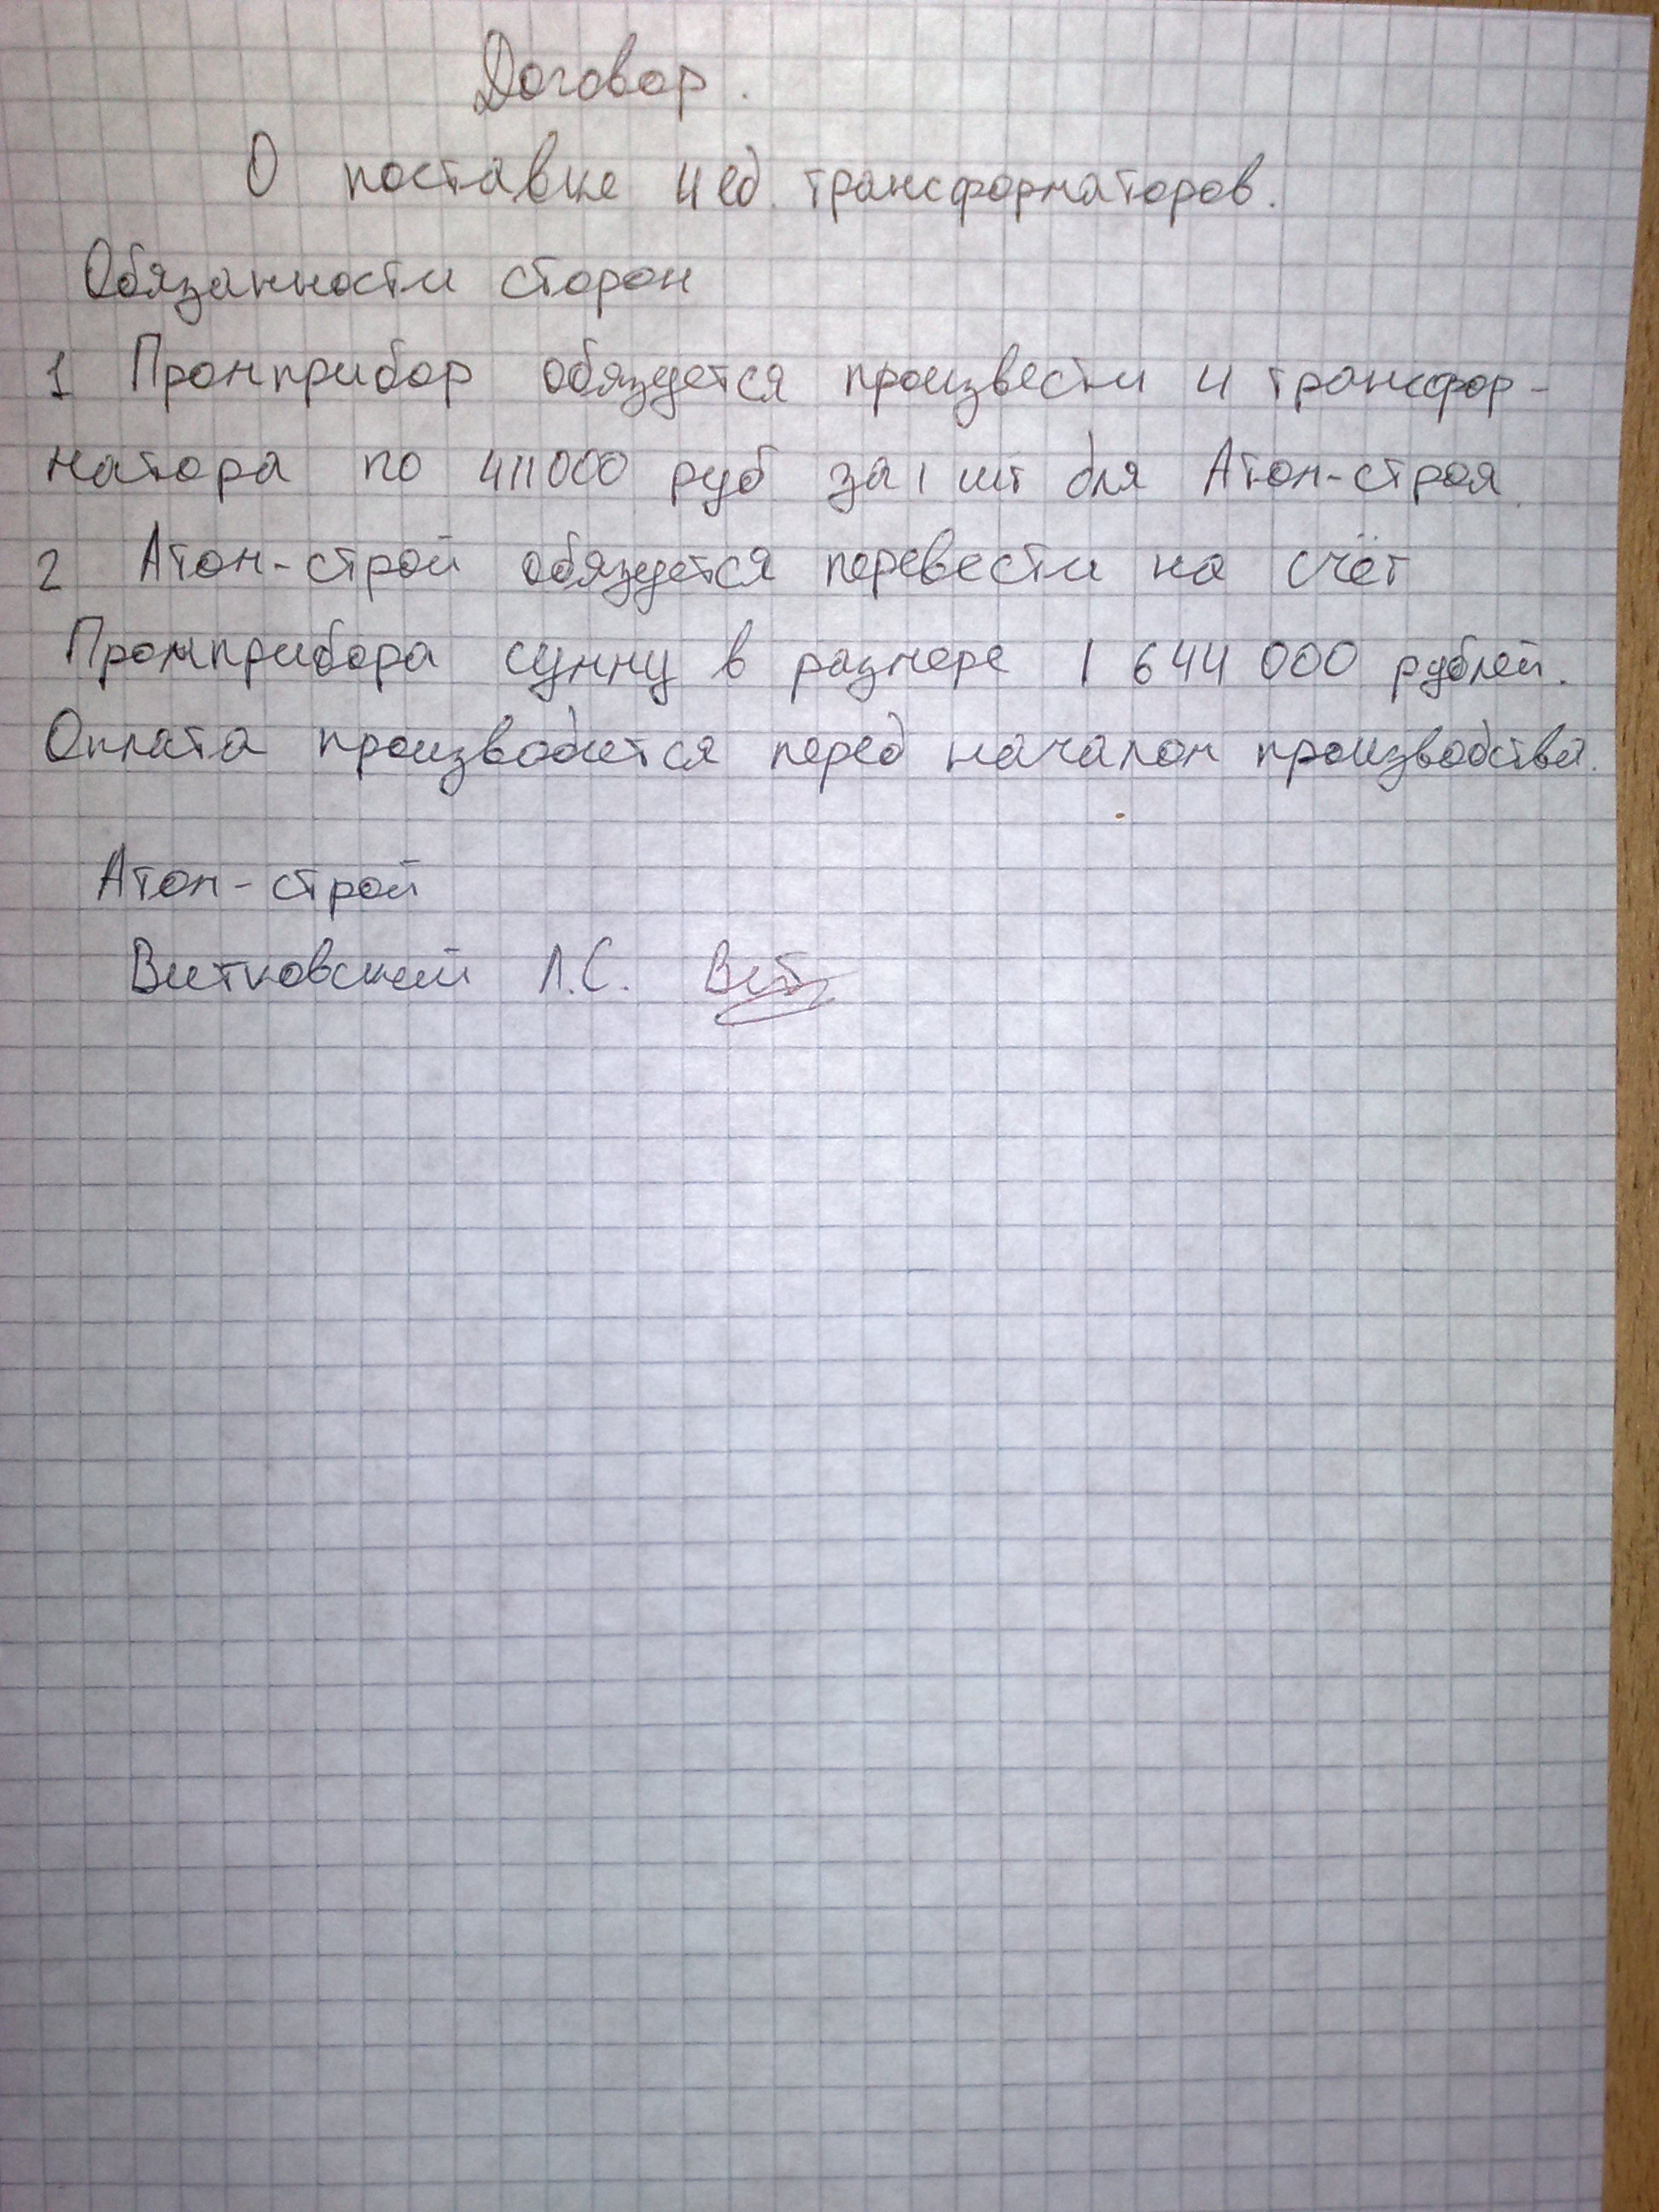 Договор.
О поставке 4 ед. трансформаторов.
Обязанности сторон
1 Промприбор обязуется произвести 4 трансфор-
матора по 411000 руб за 1 шт для Атом-строя.
2 Атом-строй обязуется перевести на счёт
Промприбора сумму в размере 1 644 000 рублей.
Оплата производится перед началом производства.
Атом-строй
Витковский Л.С. Вит